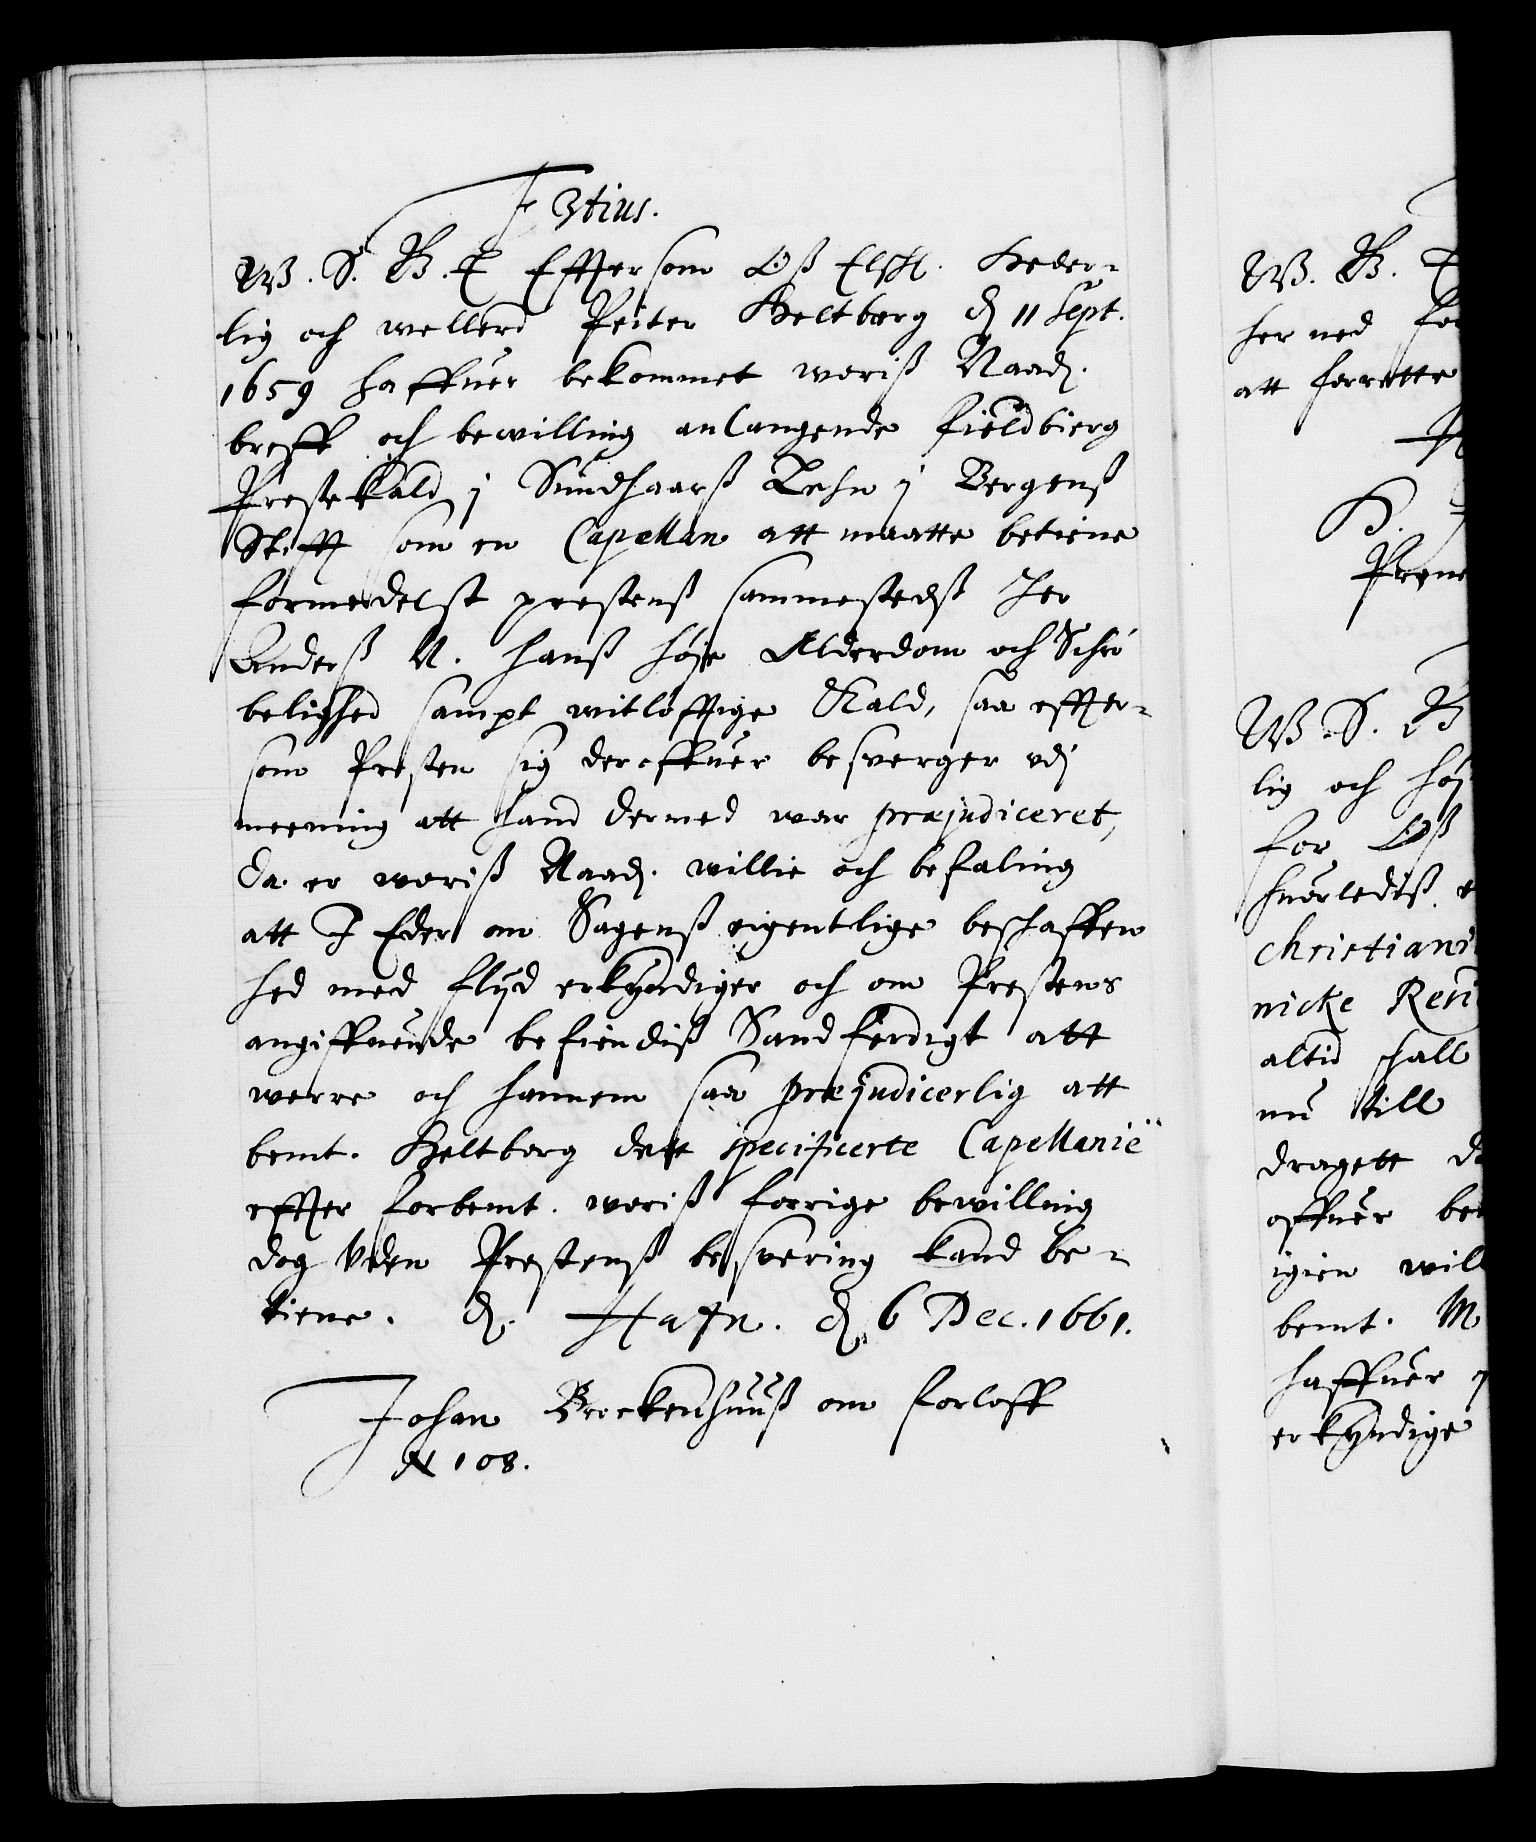 Tertius.
W. S. B. T Efftersom Oß Elskl. Heder-
lig och wellerd Peiter Heltberg d 11 Sept.
1659 haffuer bekommet woriß Naad.
breff och bewilling anlangende Fieldbierg
Prestekald j Sundhaarß Lehn j Bergenß
Stifft som en Capellan att maatte betiene
formedelst prestenß sammestedß Her
Anderß N. hanß høje Alderdom och Schrø
belighed sampt witløfftige Kald, saa effter-
som Presten sig deroffuer besverger vdj
meening att hand dermed war præjudiceret,
Da er woriß Naad. willie och befaling
att I Eder om Sagenß eigentlige beschaffen
hed med flijd erkyndiger och om Prestens
angiffuende befindiß Sandferdigt att
werre och hannem saa præjudicerlig att
bemt. Heltberg dett specificerte Capellanie
effter forbemt. woriß forrige bewilling
dog Vden Prestenß besvering kand be-
tiene. d. Hafn. d. 6 Dec. 1661.
Johan Brockenhuuß om forloff
N 108.
W. B. T
her ned for
att forrette
H.
Pren
W. S. B
lig och høj
for Oß
huorlediß
Christiani
nicke Resi
altid schall
nu till
dragett
offuer be
igien will
bemt. M
haffuer
erkyndige